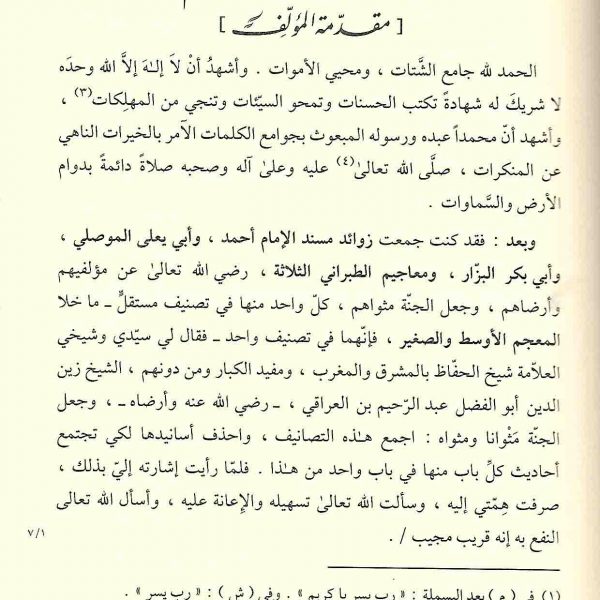 [ مقدّمة المؤلّف ]
الحمد لله جامع الشَّتات ، ومحيي الأموات . وأشهدُ أنْ لاَ إلـٰهَ إلاَّ الله وحدَه
لا شريكَ له شهادةً تكتب الحسنات وتمحو السيّئات وتنجي من المهلِكات(٣) ،
وأشهد أنّ محمداً عبده ورسوله المبعوث بجوامع الكلمات الآمر بالخيرات الناهي
عن المنكرات ، صلَّى الله تعالىٰ(٤) عليه وعلىٰ آله وصحبه صلاةً دائمةً بدوام
الأرض والسَّماوات .
وبعد : فقد كنت جمعت زوائد مسند الإمام أحمد ، وأبي يعلى الموصلي ،
وأبي بكر البزّار ، ومعاجيم الطبراني الثلاثة ، رضي الله تعالىٰ عن مؤلفيهم
وأرضاهم ، وجعل الجنّة مثواهم ، كلّ واحد منها في تصنيف مستقلٍّ ـ ما خلا
المعجم الأوسط والصغير ، فإنّهما في تصنيف واحد ـ فقال لي سيّدي وشيخي
العلاّمة شيخ الحفّاظ بالمشرق والمغرب ، ومفيد الكبار ومن دونهم ، الشيخ زين
الدين أبو الفضل عبد الرّحيم بن العراقي ، ـ رضي الله عنه وأرضاه ـ ، وجعل
الجنّة مَثْوانا ومثواه : اجمع هـٰذه التصانيف ، واحذف أسانيدها لكي تجتمع
أحاديث كلِّ باب منها في باب واحد من هـٰذا . فلمّا رأيت إشارته إليّ بذلك ،
صرفت هِمّتي إليه ، وسألت الله تعالىٰ تسهيله والإعانة عليه ، وأسأل الله تعالى
النفع به إنه قريب مجيب / .
٧/١
(١) في ( م ) بعد البسملة : « رب يسر يا كريم » . وفي ( ش ) : « رب يسر » .